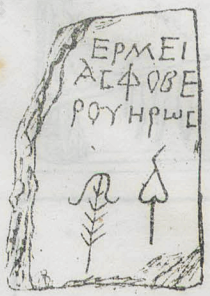 ΕΡΜΕΙ
ΑϹΦΟΒΕ
ΡΟΥΗΡωϹ